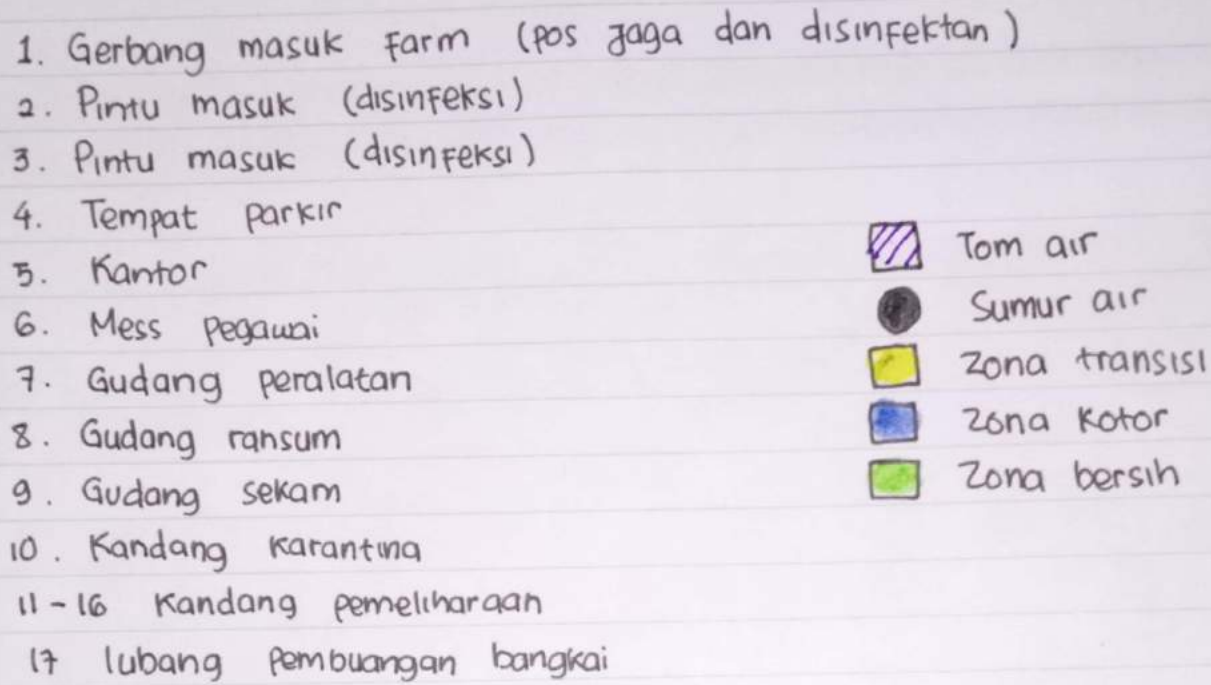 1. Gerbang masuk Farm (pos jaga dan disinfektan)
2. Pintu masuk (disinfeksi)
3. Pintu masuk (disinfeksi)
4. Tempat parkir
5. Kantor
6. Mess pegawai
7. Gudang peralatan
8. Gudang ransum
9. Gudang sekam
10. Kandang karantina
11-16 Kandang pemeliharaan
17 lubang pembuangan bangkai
Tom air
Sumur air
Zona transisi
Zona kotor
Zona bersih